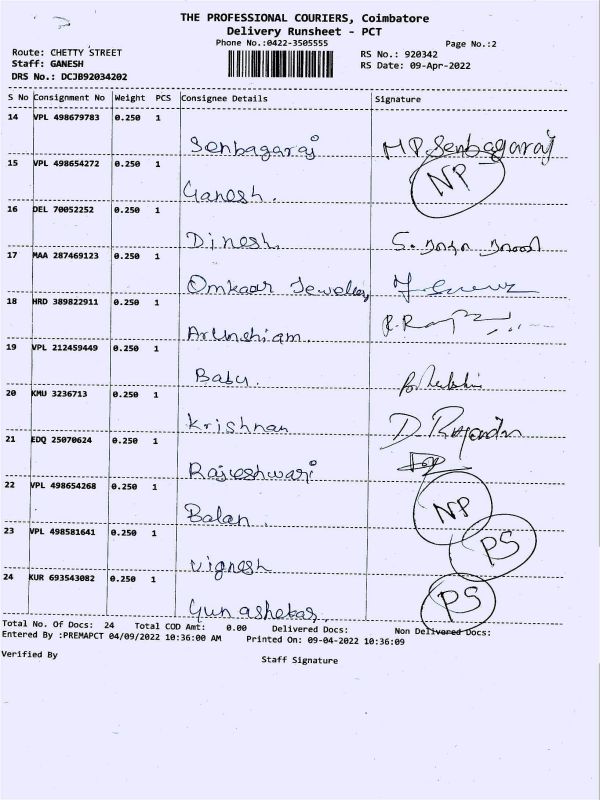 THE PROFESSIONAL COURIERS, Coimbatore
Delivery Runsheet - PCT
Phone No.:0422-3505555
Page No.:2
Route: CHETTY STREET
Staff: GANESH
DRS No.: DCJB92034202
RS No.: 920342
RS Date: 09-Apr-2022
S No Consignment No Weight PCS Consignee Details Signature
14 VPL 498679783 0.250 1
Senbagaraj M.P. Senbagaraj
15 VPL 498654272 0.250 1
Ganesh. NP
16 DEL 70052252 0.250 1
Dinesh.
17 MAA 287469123 0.250 1
Omkaar Jewellery
18 HRD 389822911 0.250 1
Arunshiam.
19 VPL 212459449 0.250 1
Babu.
20 KMU 3236713 0.250 1
Krishnan D. Rajendra
21 EDQ 25070624 0.250 1
Rajeshwari
22 VPL 498654268 0.250 1
Balan. NP
23 VPL 498581641 0.250 1
Vignesh PS
24 KUR 693543082 0.250 1
Gunashekar. PS
Total No. Of Docs: 24 Total COD Amt: 0.00 Delivered Docs: Non Delivered Docs:
Entered By :PREMAPCT 04/09/2022 10:36:00 AM Printed On: 09-04-2022 10:36:09
Verified By Staff Signature